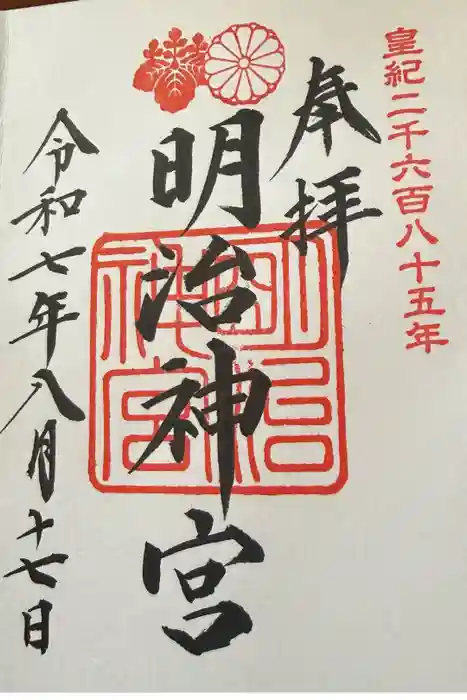 皇紀二千六百八十五年
奉拝
明治神宮
明治神宮
令和七年八月十七日